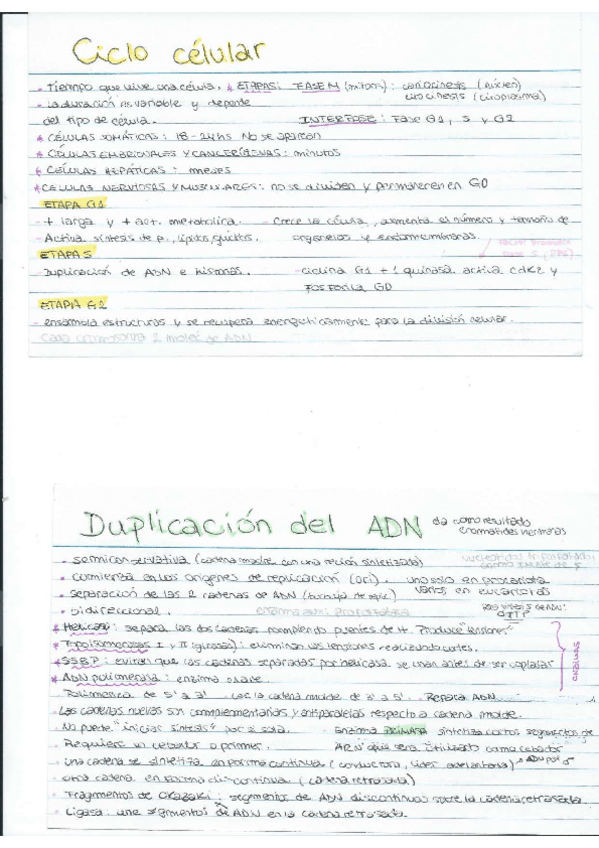 Ciclo célular
- Tiempo que vive una célula. * ETAPAS: FASE M (mitosis): cariocinesis (núcleo)
- La duración es variable y depende citocinesis (citoplasma)
del tipo de célula. INTERFASE: Fase G1, S y G2
* CÉLULAS SOMÁTICAS: 18-24hs No se aparean
* CÉLULAS EMBRIONALES Y CANCERÍGENAS: minutos
* CÉLULAS HEPÁTICAS: meses
* CÉLULAS NERVIOSAS Y MUSCULARES: no se dividen y permanecen en G0
ETAPA G1
- + larga y + act. metabólica. - Crece la célula, aumenta el número y tamaño de
- Activa síntesis de p., lípidos, glúcidos. organelos y endomembranas.
ETAPA S
Duplicación de ADN e histonas. - ciclina G1 + quinasa activa cdk2 y
fosforila G0
ETAPA G2
- ensambla estructuras y se recupera energéticamente para la división celular.
Cada cromosoma 2 molec de ADN
Duplicación del ADN da como resultado
cromátides hermanas
- semiconservativa (cadena madre con una recién sintetizada)
- Comienza en los orígenes de replicación (ori). uno solo en procariota
- Separación de las 2 cadenas de ADN varios en eucariotas
- bidireccional.
* Helicasa: separa las dos cadenas rompiendo puentes de H. Produce "tensiones"
* Topoisomerasas I y II (girasa): eliminan las tensiones realizando cortes.
* SSBP: evitan que las cadenas separadas por helicasa se unan antes de ser copiadas
* ADN polimerasa: enzima clave.
Polimeriza de 5' a 3' Lee la cadena molde de 3' a 5'. Repara ADN
- Las cadenas nuevas son complementarias y antiparalelas respecto a cadena molde.
- No puede "iniciar síntesis" por sí sola. Enzima PRIMASA sintetiza cortos segmentos de
- Requiere un cebador o primer. ARN que será utilizado como cebador
- Una cadena se sintetiza en forma continua (conductora, líder, adelantada)
- Otra cadena en forma discontinua (cadena retrasada)
- Fragmentos de Okazaki: segmentos de ADN discontinuos sobre la cadena retrasada
- Ligasa: une segmentos de ADN en la cadena retrasada.